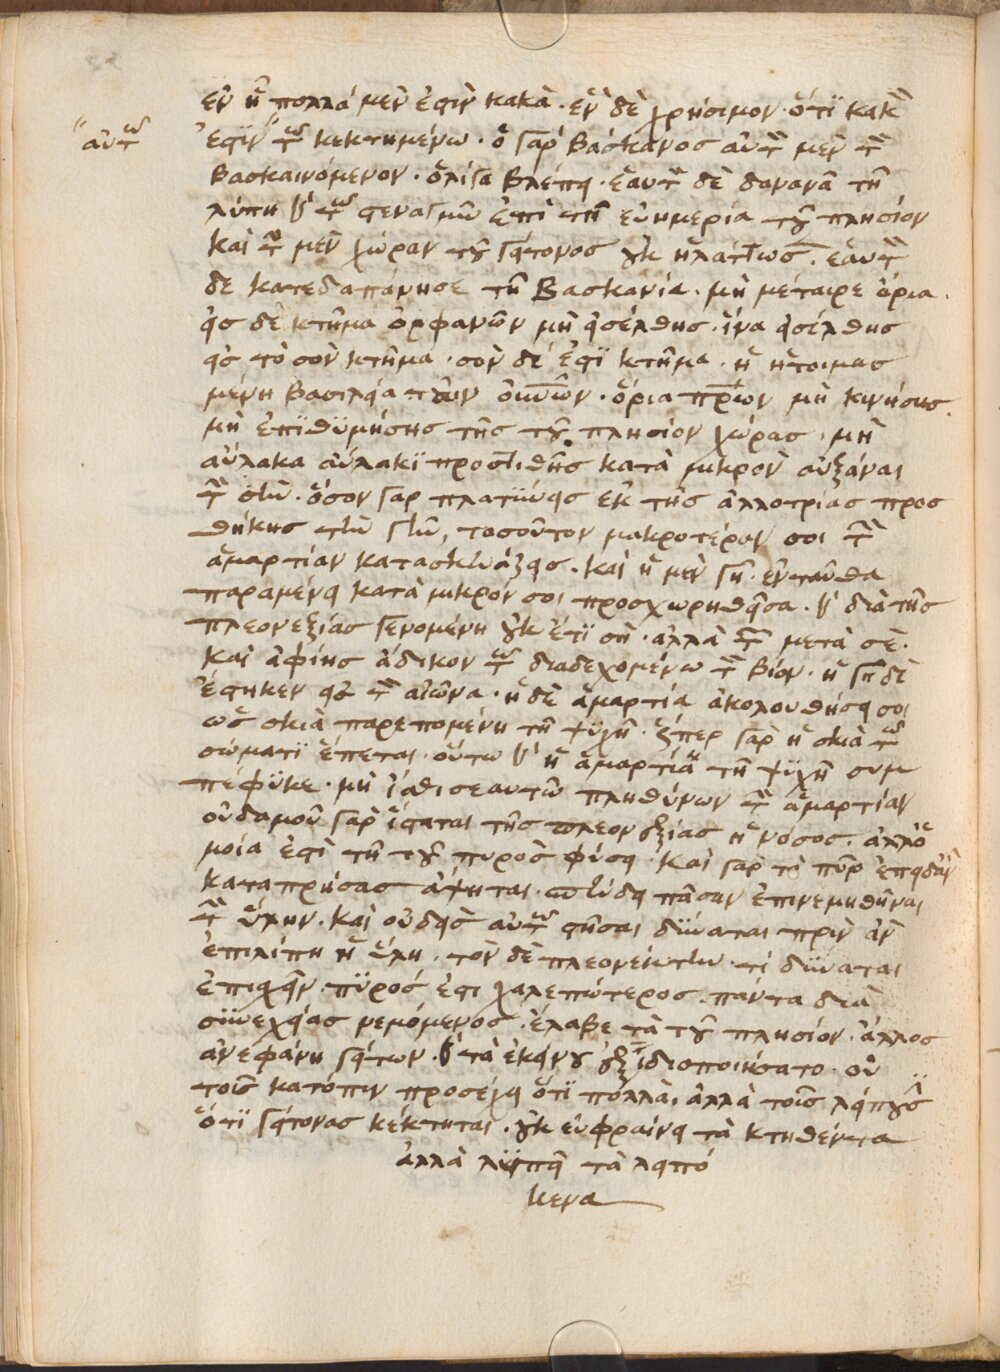 ἐν ἧ πολλὰ μέν ἐστιν κακὰ· ἓν δὲ χρήσιμον· ὅτι κακὸν
αὐτῶ
ἐστιν τῶ κεκτημένω· ὁ γὰρ βάσκανος αὐτὸν μὲν τὸν
βασκαινόμενον· ὀλίγα βλέπει· ἑαυτὸν δὲ δαπανᾶ τῆ
λύπη καὶ τῶ στεναγμῶ ἐπὶ τῆ εὐημερία τοῦ πλησίον
καὶ τὴν μὲν χώραν τοῦ γείτονος οὐκ ἠλάττωσεν· ἑαυτὸν
δὲ κατεδαπάνησε τῆ βασκανία· μὴ μέταιρε ὅρια·
εἰς δὲ κτῆμα ὀρφανῶν μὴ εἰσέλθης· ἵνα εἰσέλθης
εἰς τὸ σὸν κτῆμα· σὸν δέ ἐστι κτῆμα· ἡ ἡτοιμασ
μένη βασιλεία τῶν οὐνῶν· ὅρια πρων μὴ κινήσης·
μὴ ἐπιθυμήσης τῆς τοῦ πλησίον χώρας· μὴ
αὔλακα αὔλακι προστιθῆς κατὰ μικρὸν αὐξάναι
τὴν σὴν· ὅσον γὰρ πλατύνεις ἐκ τῆς ἀλλοτρίας προσ
θήκης τὴν γῆν, τοσοῦτον μακροτέραν σοι τὴν
ἁμαρτίαν κατασκευάζεις· καὶ ἡ μὲν γῆ ἐνταῦθα
παραμένει κατὰ μικρόν σοι προσχωρηθεῖσα· καὶ διὰ τῆς
πλεονεξίας γενομένη οὐκ ἔτι σὴ· ἀλλὰ τῶν μετὰ σὲ·
καὶ ἀφίης ἄδικον τῶ διαδεχομένω τὸν βίον· ἡ γῆ δὲ
ἕστηκεν εἰς τὸν αἰῶνα· ἡ δὲ ἁμαρτία ἀκολουθήσει σοι
ὡς σκιὰ παρεπομένη τῆ ψυχῆ· ὥσπερ γὰρ ἡ σκιὰ τῶ
σώματι ἕπεται· οὕτω καὶ ἡ ἁμαρτία τῆ ψυχῆ συμ
πέφυκε· μὴ ἴσθι σεαυτῶ πληθύνων τὴν ἁμαρτίαν
οὐδαμοῦ γὰρ ἵσταται τῆς πλεονεξίας ἡ νόσος· ἀλλ' ὁ
μοία ἐστὶ τῆ τοῦ πυρὸς φύσει· καὶ γὰρ τὸ πῦρ ἐπειδὰν
καταπρήσας ἅψηται· σπεύδει πᾶσαν ἐπινεμηθῆναι
τὴν ὕλην· καὶ οὐδεὶς αὐτῶ στῆσαι δύναται πρὶν ἂν
ἐπιλίπη ἡ ὕλη· τὸν δὲ πλεονέκτην τί δύναται
ἐπισχεῖν· πυρός ἐστι χαλεπώτερος· πάντα διὰ
συνεχείας νεμόμενος· ἔλαβε τὰ τοῦ πλησίον· ἄλλος
ἀνεφάνη γείτων· καὶ τὰ ἐκείνου ἐξιδιοποιήσατο· οὐ
τοῖς κατόπιν προσέχει ὅτι πολλὰ, ἀλλὰ τοῖς λείπουσιν
ὅτι γείτονας κέκτηται· οὐκ εὐφραίνει τὰ κτηθέντα
ἀλλὰ λυπεῖ τὰ λειπό
μενα